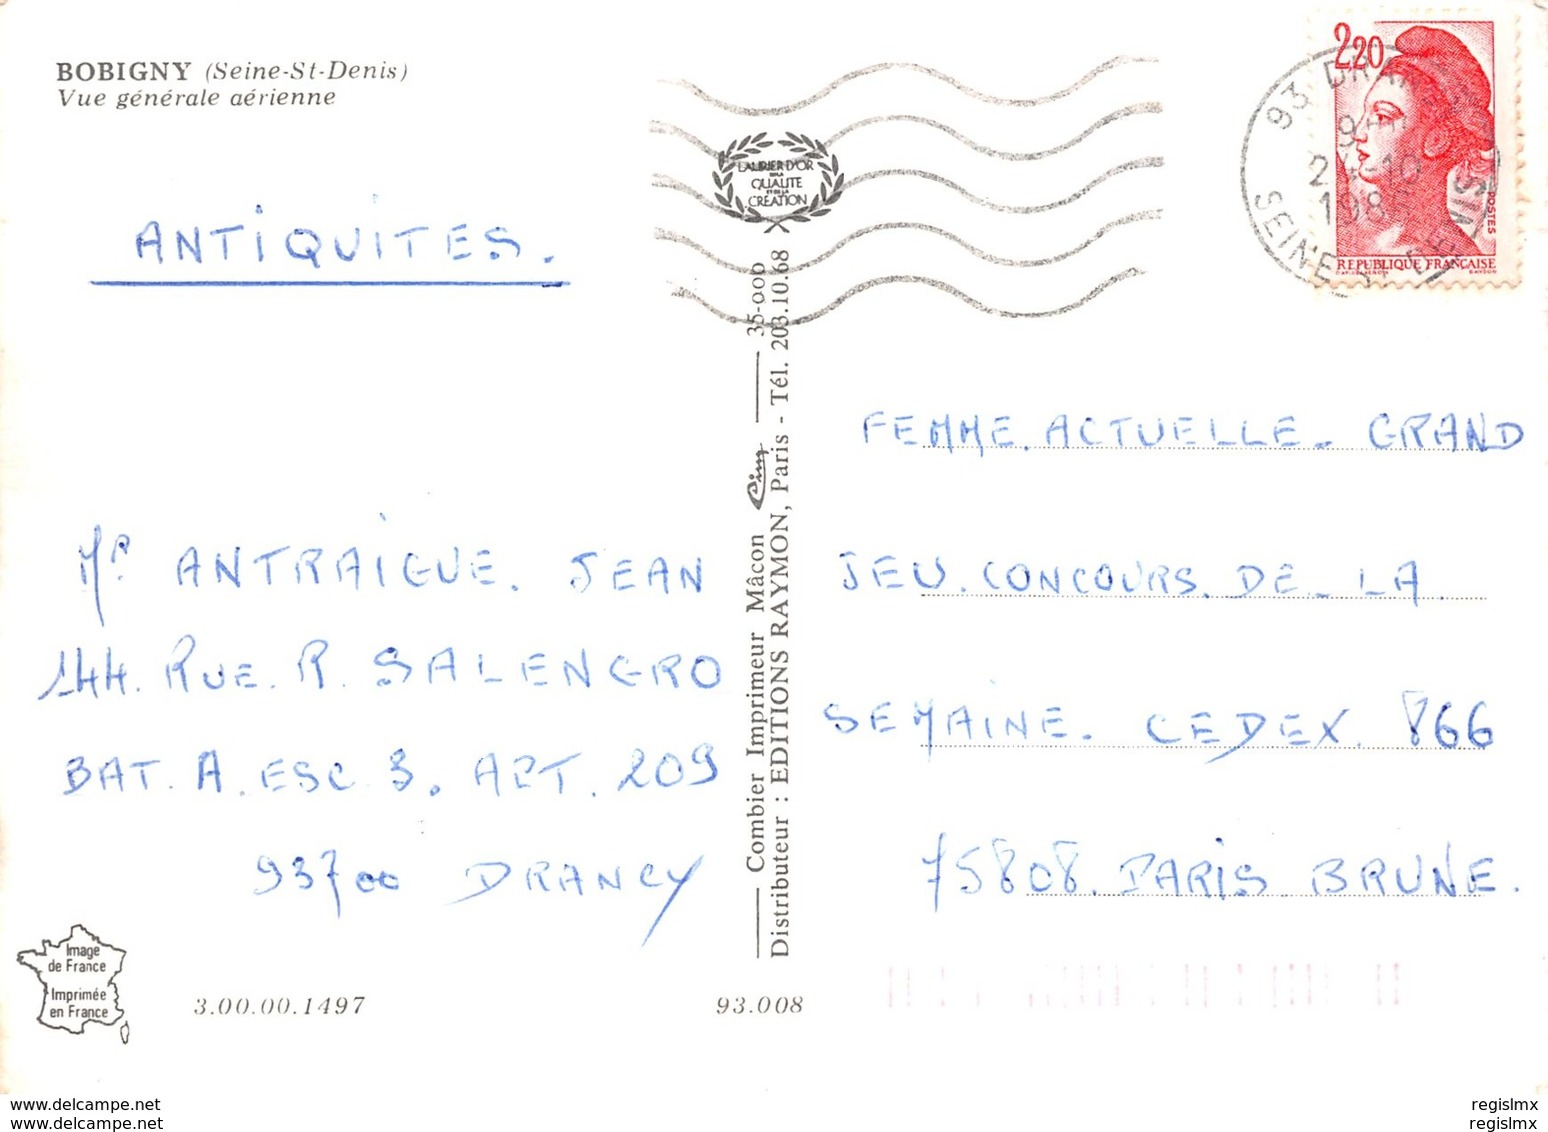 BOBIGNY (Seine-St-Denis)
Vue générale aérienne
ANTIQUITES.
Mr ANTRAIGUE. JEAN
144. RUE. R. SALENGRO
BAT. A. ESC 3. APT. 209
93700 DRANCY
Image
de France
Imprimée
en France
3.00.00.1497
93.008
LAURIER D'OR
DE LA
QUALITE
ET DE LA
CREATION
Combier Imprimeur Mâcon Cim 35-000
Distributeur : EDITIONS RAYMON, Paris - Tél. 203.10.68
2,20
POSTES
REPUBLIQUE FRANÇAISE
93
SEINE
FEMME. ACTUELLE. GRAND
JEU. CONCOURS. DE. LA.
SEMAINE. CEDEX. 866
75808. PARIS BRUNE.
www.delcampe.net
www.delcampe.net
regislmx
regislmx